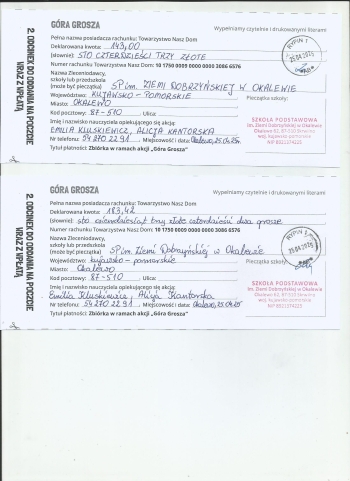 2. ODCINEK DO ODDANIA NA POCZCIE
WRAZ Z WPŁATĄ
GÓRA GROSZA
Wypełniamy czytelnie i drukowanymi literami
Pełna nazwa posiadacza rachunku: Towarzystwo Nasz Dom
Deklarowana kwota: 143,00
(słownie): STO CZTERDZIEŚCI TRZY ZŁOTE
Numer rachunku Towarzystwo Nasz Dom: 10 1750 0009 0000 0000 3086 6576
Nazwa Zleceniodawcy,
szkoły lub przedszkola
(może być pieczątka) SP im. ZIEMI DOBRZYŃSKIEJ W OKALEWIE
Województwo: KUJAWSKO-POMORSKIE
Pieczątka szkoły:
Miasto: OKALEWO
Kod pocztowy: 87-510 Ulica:
Imię i nazwisko nauczyciela opiekującego się akcją:
EMILIA KLUSKIEWICZ, ALICJA KANTORSKA
Nr telefonu: 54 270 22 91 Miejscowość i data: Okalewo, 25.04.25r.
Tytuł płatności: Zbiórka w ramach akcji „Góra Grosza”
RYPIN 1
25.04.2025
SZKOŁA PODSTAWOWA
im. Ziemi Dobrzyńskiej w Okalewie
Okalewo 61, 87-510 Skrwilno
woj. kujawsko-pomorskie
2. ODCINEK DO ODDANIA NA POCZCIE
WRAZ Z WPŁATĄ
GÓRA GROSZA
Wypełniamy czytelnie i drukowanymi literami
Pełna nazwa posiadacza rachunku: Towarzystwo Nasz Dom
Deklarowana kwota: 143,42
(słownie): sto czterdzieści trzy złote czterdzieści dwa grosze
Numer rachunku Towarzystwo Nasz Dom: 10 1750 0009 0000 0000 3086 6576
Nazwa Zleceniodawcy,
szkoły lub przedszkola
(może być pieczątka) SP im. Ziemi Dobrzyńskiej w Okalewie
Województwo: kujawsko-pomorskie
Pieczątka szkoły:
Miasto: Okalewo
Kod pocztowy: 87-510 Ulica:
Imię i nazwisko nauczyciela opiekującego się akcją:
Emilia Kluskiewicz, Alicja Kantorska
Nr telefonu: 54 270 22 91 Miejscowość i data: Okalewo, 25.04.25
Tytuł płatności: Zbiórka w ramach akcji „Góra Grosza”
RYPIN 1
SZKOŁA PODSTAWOWA
im. Ziemi Dobrzyńskiej w Okalewie
Okalewo 61, 87-510 Skrwilno
woj. kujawsko-pomorskie